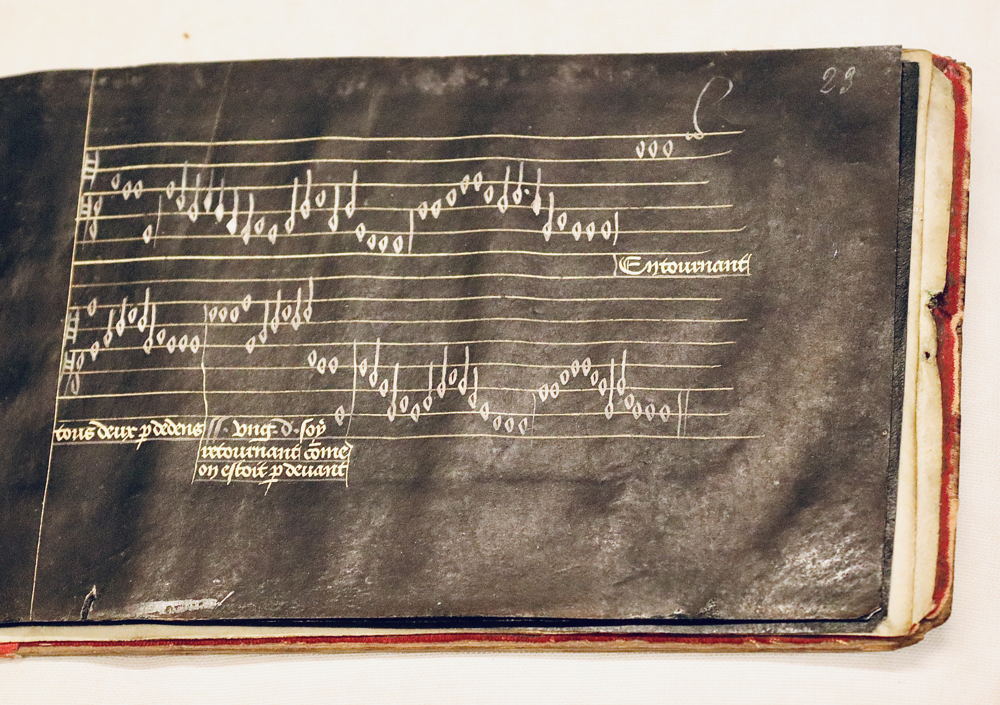 23
Entournant
tous deux p dedens
vng. d. soy
retournant cōme
on estoit p deuant